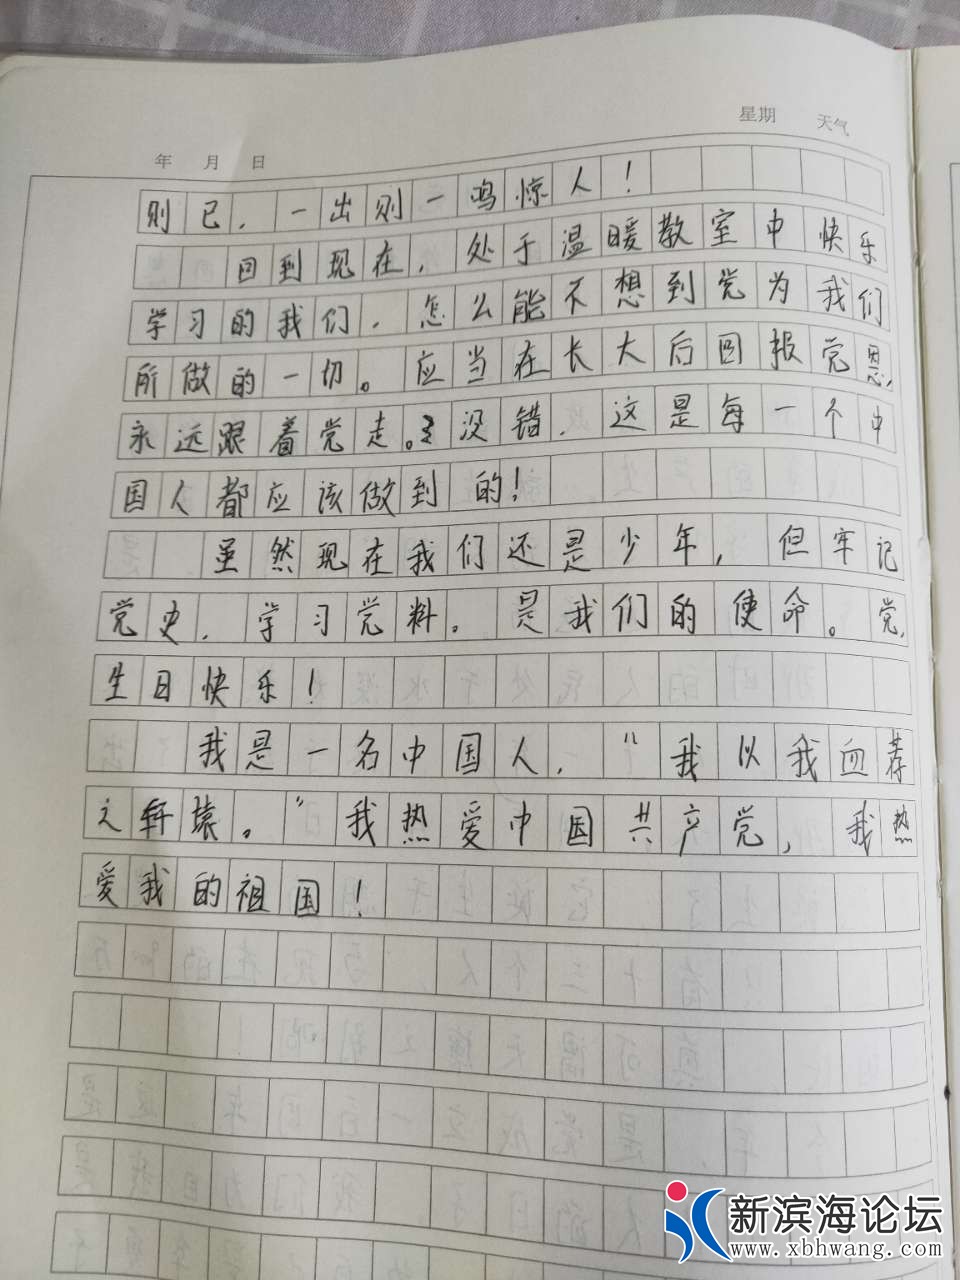 星期 天气
年 月 日
则已，一出则一鸣惊人！
回到现在，处于温暖教室中快乐
学习的我们，怎么能不想到党为我们
所做的一切。应当在长大后回报党恩，
永远跟着党走。没错，这是每一个中
国人都应该做到的！
虽然现在我们还是少年，但牢记
党史，学习党料。是我们的使命。党，
生日快乐！
我是一名中国人，“我以我血荐
之轩辕。”我热爱中国共产党，我热
爱我的祖国！
新滨海论坛
www.xbhwang.com